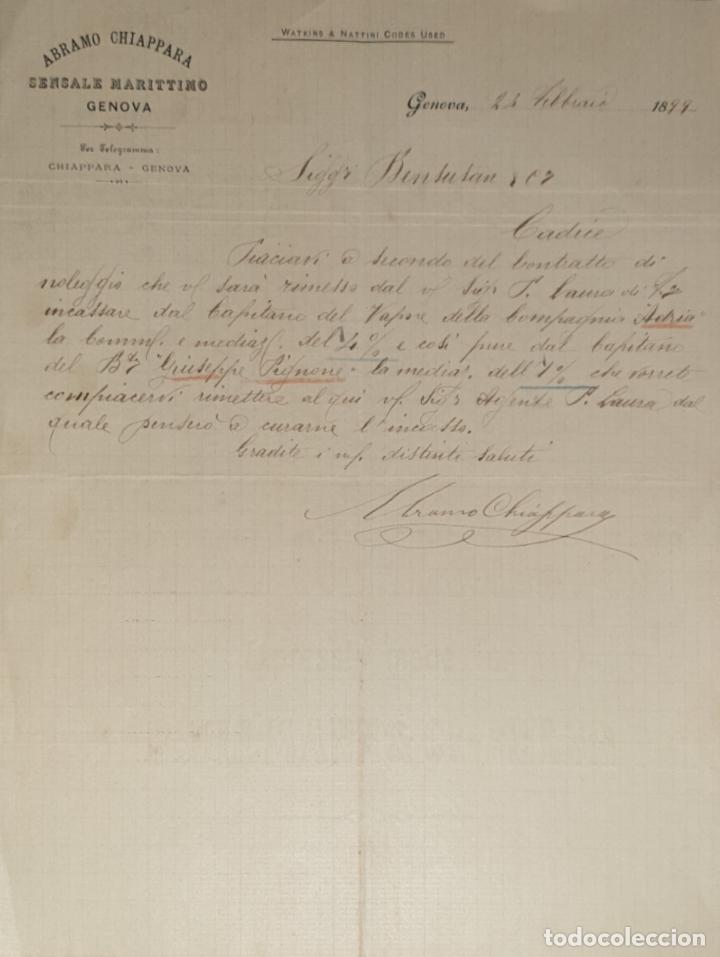 WATKINS & NATTINI CODES USED
ABRAMO CHIAPPARA
SENSALE MARITTIMO
GENOVA
Per Telegramma:
CHIAPPARA - GENOVA
Genova, Febbraio 1899
Sigg.ri Bensusan & C.o
Cadice
Piaciavi a secondo del Contratto di
noleggio che vi sarà rimesso dal Sig. P. Laura di
incassare dal Capitano del Vapore della Compagnia Adria
la Comm. e mediaz. del % e così pure dal Capitano
del "Giuseppe Pignone" la mediaz. dell' 1% che vorrete
compiacervi rimettere al qui Sig.r Agente P. Laura dal
quale penserò a curarne l'incasso.
Gradite i distinti saluti
Abramo Chiappara
todocoleccion
todocoleccion.net